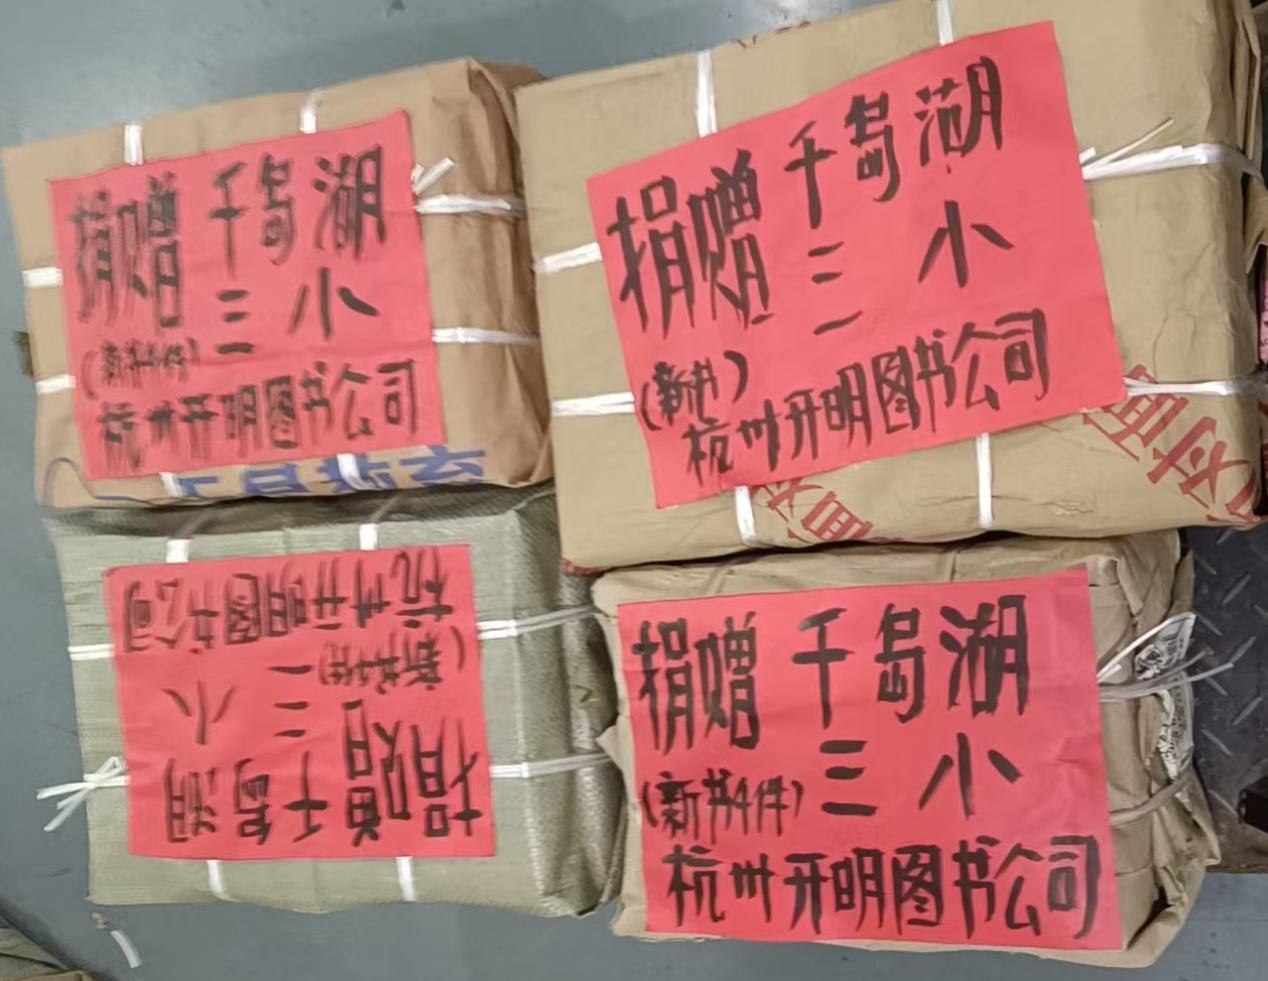 捐赠千岛湖
三小
(新书4件)
杭州开明图书公司
捐赠千岛湖
三小
(新书)
杭州开明图书公司
捐赠千岛湖
三小
(新书4件)
杭州开明图书公司
捐赠千岛湖
三小
(新书4件)
杭州开明图书公司